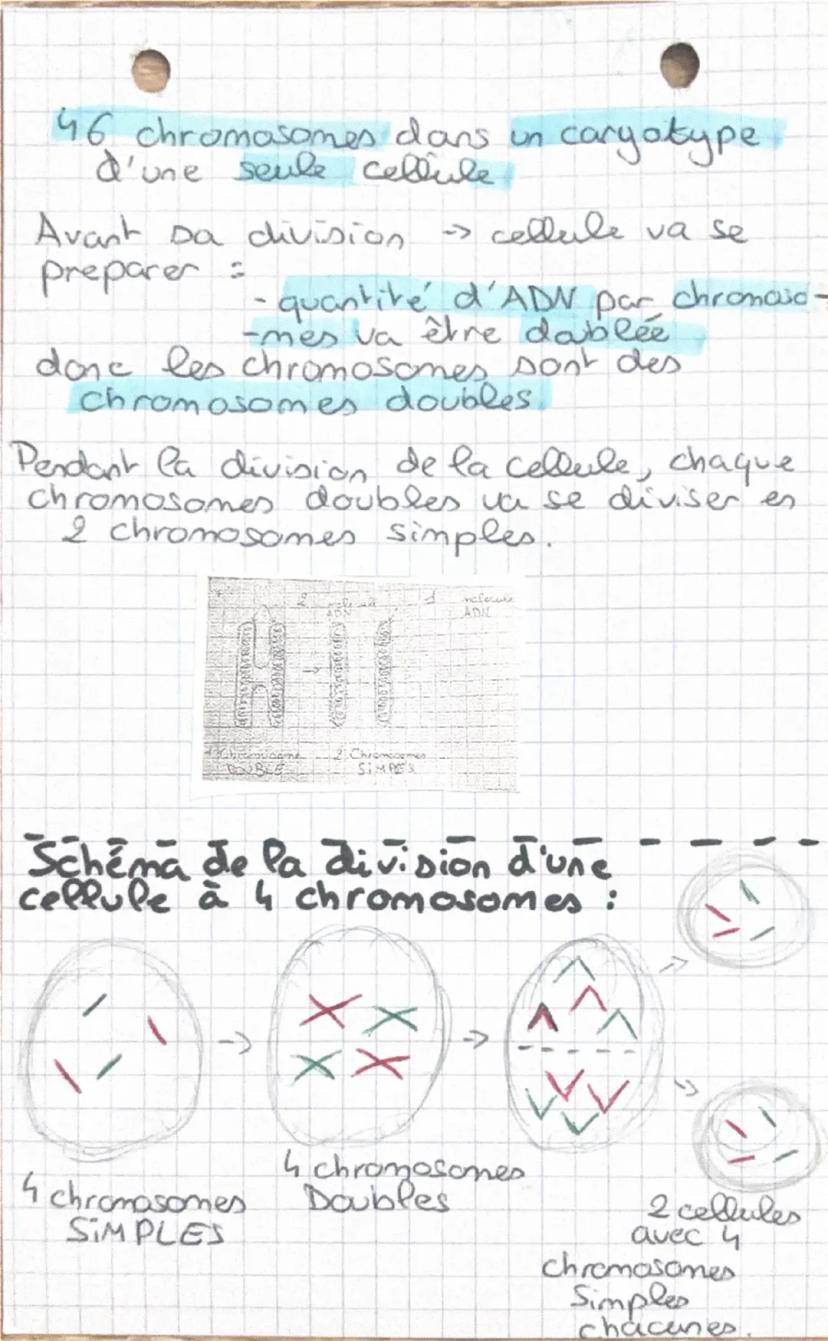 46 chromosomes dans un caryotype
d'une seule cellule
Avant sa division → cellule va se
preparer :
- quantité d'ADN par chromoso-
-mes va être doublée
donc les chromosomes sont des
chromosomes doubles
Pendant la division de la cellule, chaque
chromosomes doubles va se diviser en
2 chromosomes simples.
2 molécule 1 molécule
ADN ADN
1 Chromosome 2 Chromosomes
DOUBLE SiMPLES
Schéma de la division d'une
cellule à 4 chromosomes :
4 chromosomes
SiMPLES
4 chromosomes
Doubles
2 cellules
avec 4
chromosomes
Simples
chacunes.